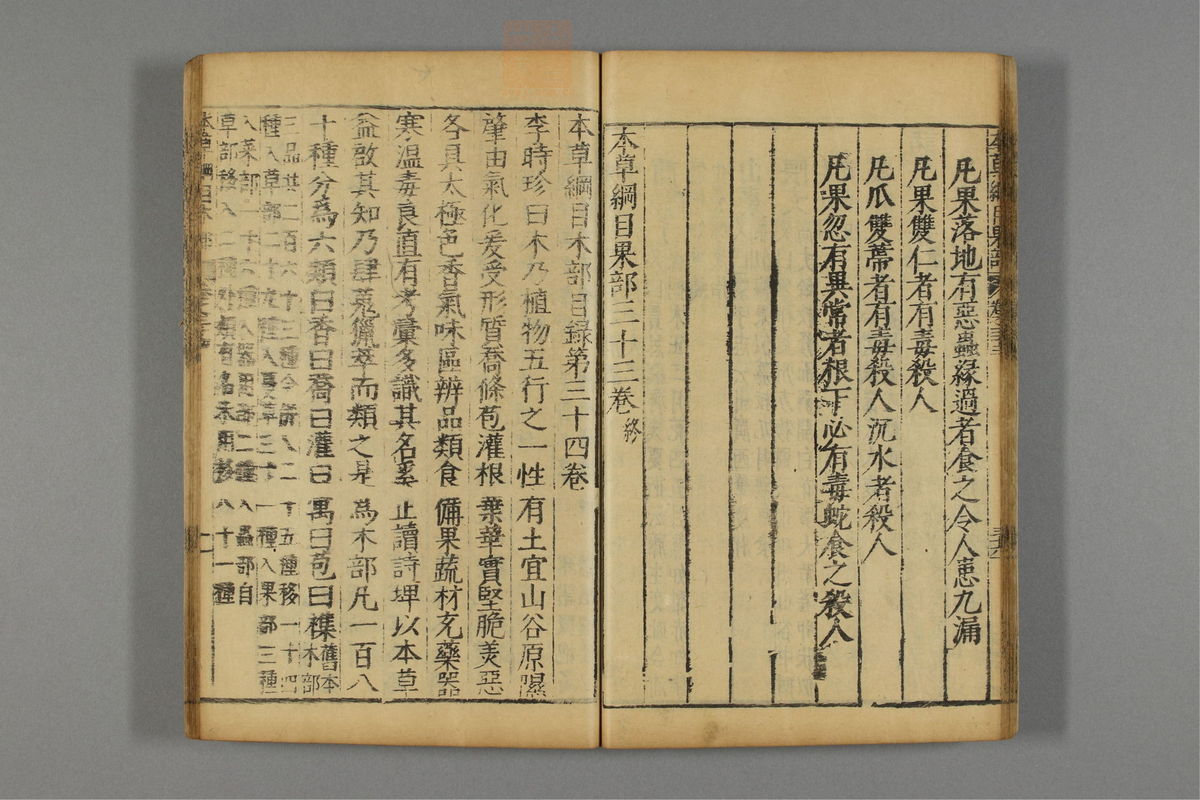 本草綱目果部
凡果落地有惡蟲緣過者食之令人患九漏
凡果雙仁者有毒殺人
凡瓜雙蒂者有毒殺人沉水者殺人
凡果忽有異常者根下必有毒蛇食之殺人
本草綱目果部三十三卷終
本草綱目木部目錄第三十四卷
李時珍曰木乃植物五行之一性有土宜山谷原隰
肇由氣化爰受形質喬條苞灌根葉華實堅脆美惡
各具太極色香氣味區辨品類食備果蔬材充藥器
寒溫毒良直有考彙多識其名奚止讀詩埤以本草
益啟其知乃肆蒐獵萃而類之是爲木部凡一百八
十種分爲六類曰香曰喬曰灌曰寓曰苞曰襍舊本木部
三品其二百六十三種今併入二十五種移一十四
種入草部二十九種入蔓草三十一種入果部三種
入菜部一十六種入器用部二種入蟲部自
草部移入二種外類有名未用移八十一種